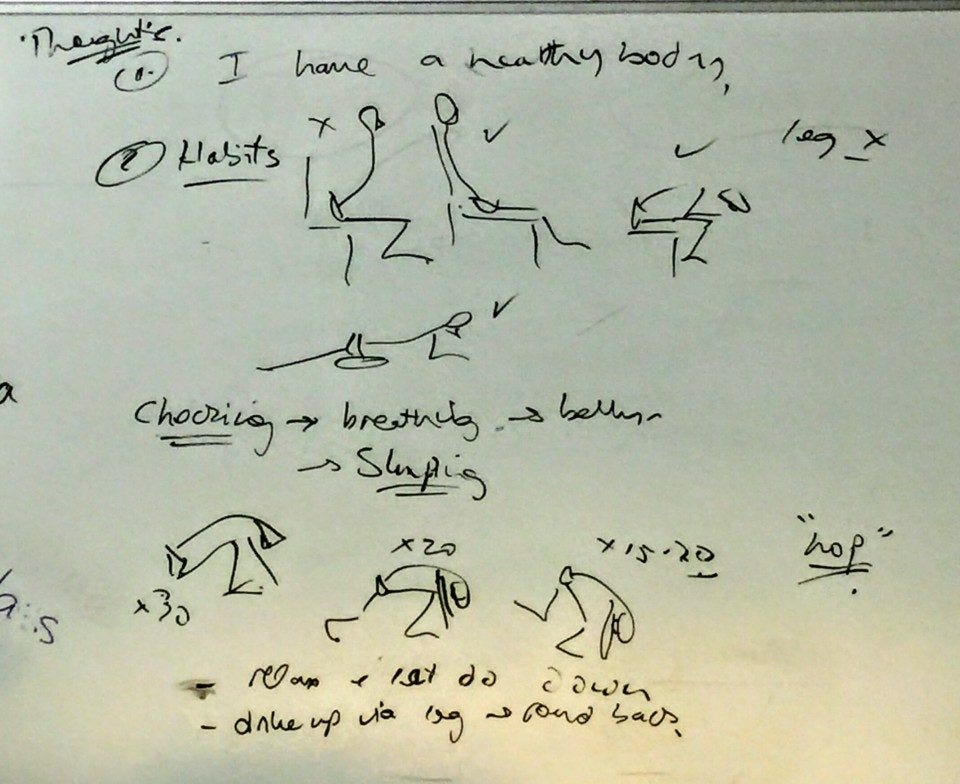 "Thoughts".
①. I have a healthy body,
② Habits
x
✓
✓
leg x
✓
Choosing → breathing → belly
→ Sleeping
x30
x20
x15-20
"hop"
- relax & let go down
- drive up via leg → round back.